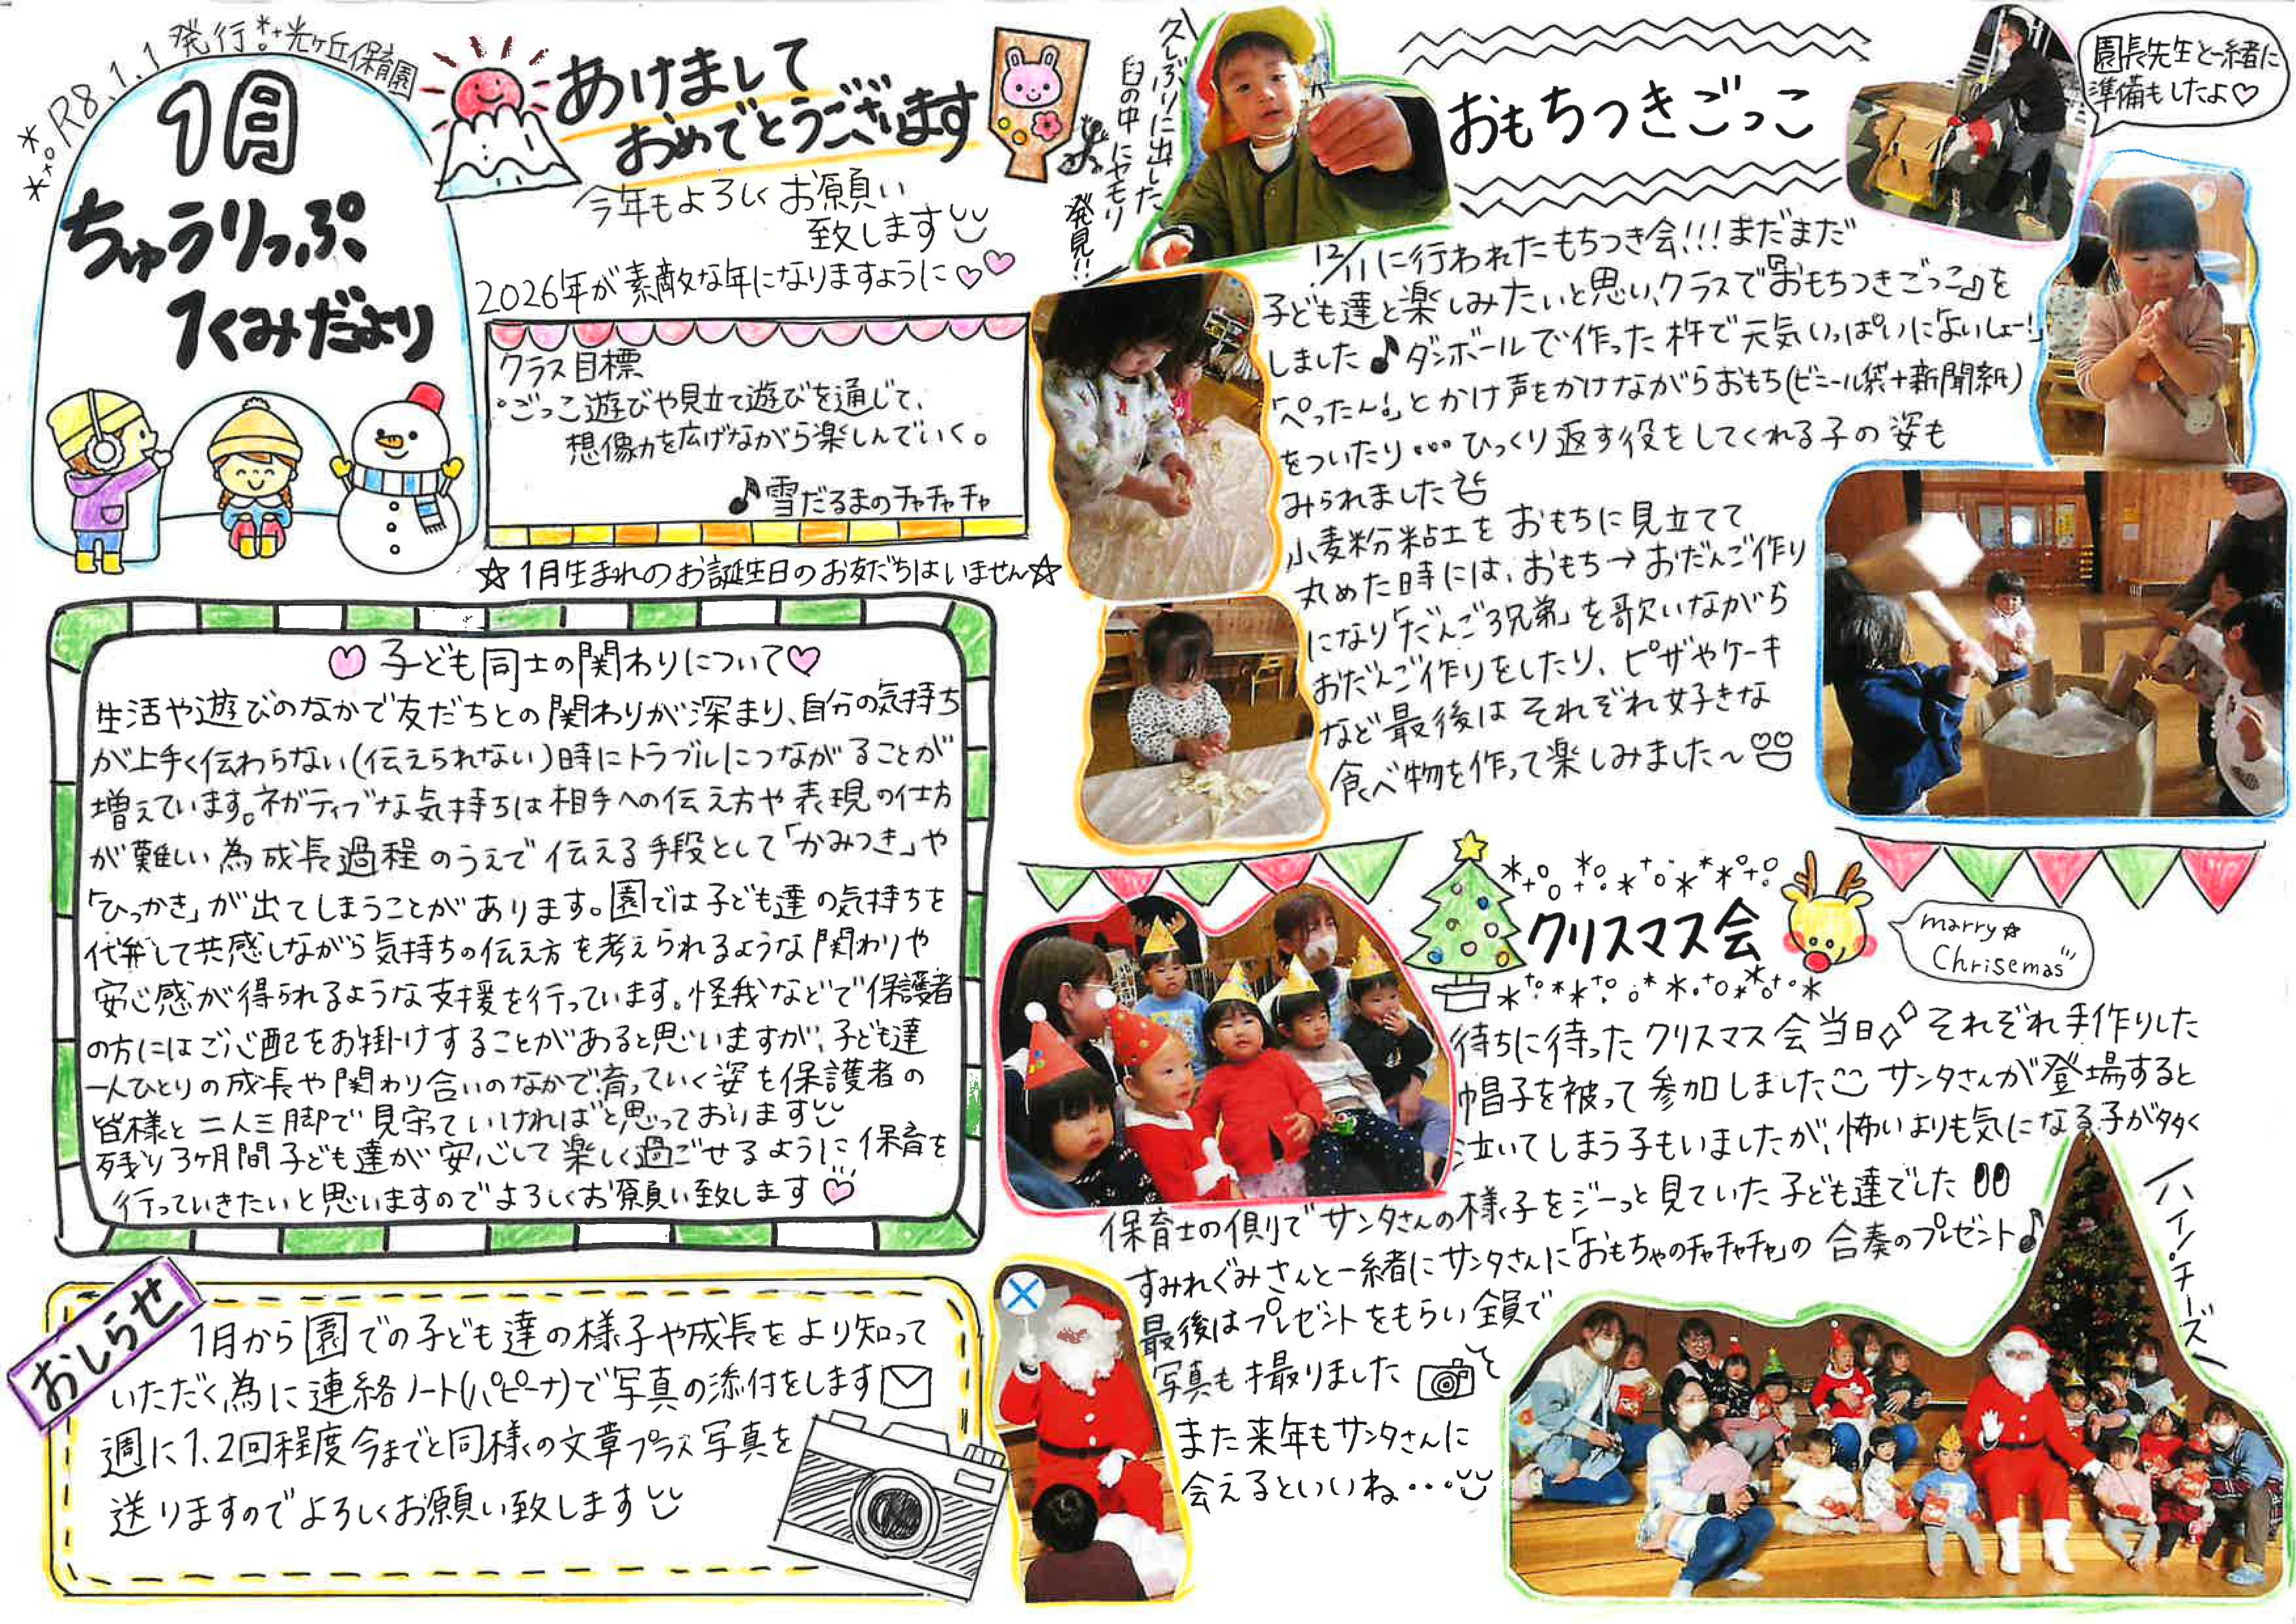 *°R8.1.1 発行 光ヶ丘保育園
1月
ちゅうりっぷ
1くみだより
あけまして
おめでとうございます
今年もよろしくお願い
致します
2026年が素敵な年になりますように♡♡
クラス目標
・ごっこ遊びや見立て遊びを通じて、
想像力を広げながら楽しんでいく。
♪雪だるまのチャチャチャ
☆1月生まれのお誕生日のお友だちはいません☆
♡子ども同士の関わりについて♡
生活や遊びのなかで友だちとの関わりが深まり、自分の気持ち
が上手く伝わらない(伝えられない)時にトラブルにつながることが
増えています。ネガティブな気持ちは相手への伝え方や表現の仕方
が難しい為成長過程のうえで伝える手段として「かみつき」や
「ひっかき」が出てしまうことがあります。園では子ども達の気持ちを
代弁して共感しながら気持ちの伝え方を考えられるような関わりや
安心感が得られるような支援を行っています。怪我などで保護者
の方にはご心配をお掛けすることがあると思いますが、子ども達
一人ひとりの成長や関わり合いのなかで育っていく姿を保護者の
皆様と二人三脚で見守っていければと思っております
残り3ヶ月間子ども達が安心して楽しく過ごせるように保育を
行っていきたいと思いますのでよろしくお願い致します♡
おしらせ
1月から園での子ども達の様子や成長をより知って
いただく為に連絡ノート(パピーナ)で写真の添付をします
週に1.2回程度今までと同様の文章プラス写真を
送りますのでよろしくお願い致します
久しぶりに出した
臼の中にヤモリ
発見!!
おもちつきごっこ
園長先生と一緒に
準備もしたよ♡
12/11に行われたもちつき会!!!まだまだ
子ども達と楽しみたいと思い、クラスで『おもちつきごっこ』を
しました♪ダンボールで作った杵で元気いっぱいに「よいしょー!
「ぺったん!」とかけ声をかけながらおもち(ビニール袋+新聞紙)
をついたり…ひっくり返す役をしてくれる子の姿も
みられました
小麦粉粘土をおもちに見立てて
丸めた時には、おもち→おだんご作り
になり「だんご3兄弟」を歌いながら
おだんご作りをしたり、ピザやケーキ
など最後はそれぞれ好きな
食べ物を作って楽しみました〜
クリスマス会
marry☆
Chrisemas
待ちに待ったクリスマス会当日 それぞれ手作りした
帽子を被って参加しました サンタさんが登場すると
泣いてしまう子もいましたが、怖いよりも気になる子が多く
保育士の側でサンタさんの様子をジーっと見ていた子ども達でした
すみれぐみさんと一緒にサンタさんに「おもちゃのチャチャチャ」の合奏のプレゼント♪
最後はプレゼントをもらい全員で
写真も撮りました
また来年もサンタさんに
会えるといいね…
ハイ!チーズ